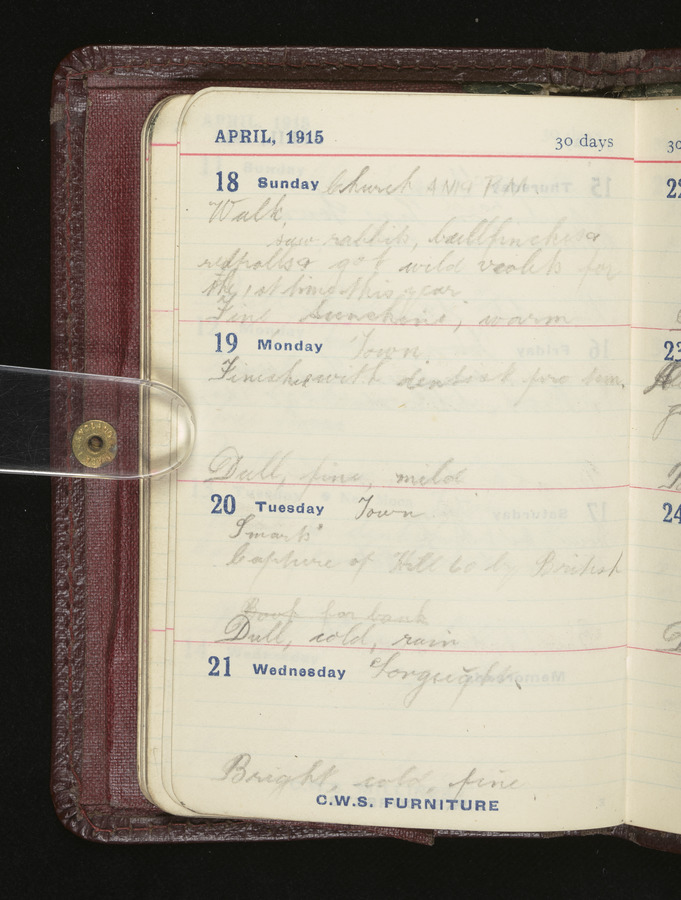 APRIL, 1915 30 days
18 Sunday Church
Walk
saw rabbits, bullfinches &
redpolls & got wild violets for
the 1st time this year
Fine Sunshine, warm
19 Monday Town.
Finished with dentist pro tem.
Dull, fine, mild
20 Tuesday Town
Smarts
Capture of Hill 60 by British
Book for bank
Dull, cold, rain
21 Wednesday
Bright, cold, fine
C.W.S. FURNITURE
30
22
23
24